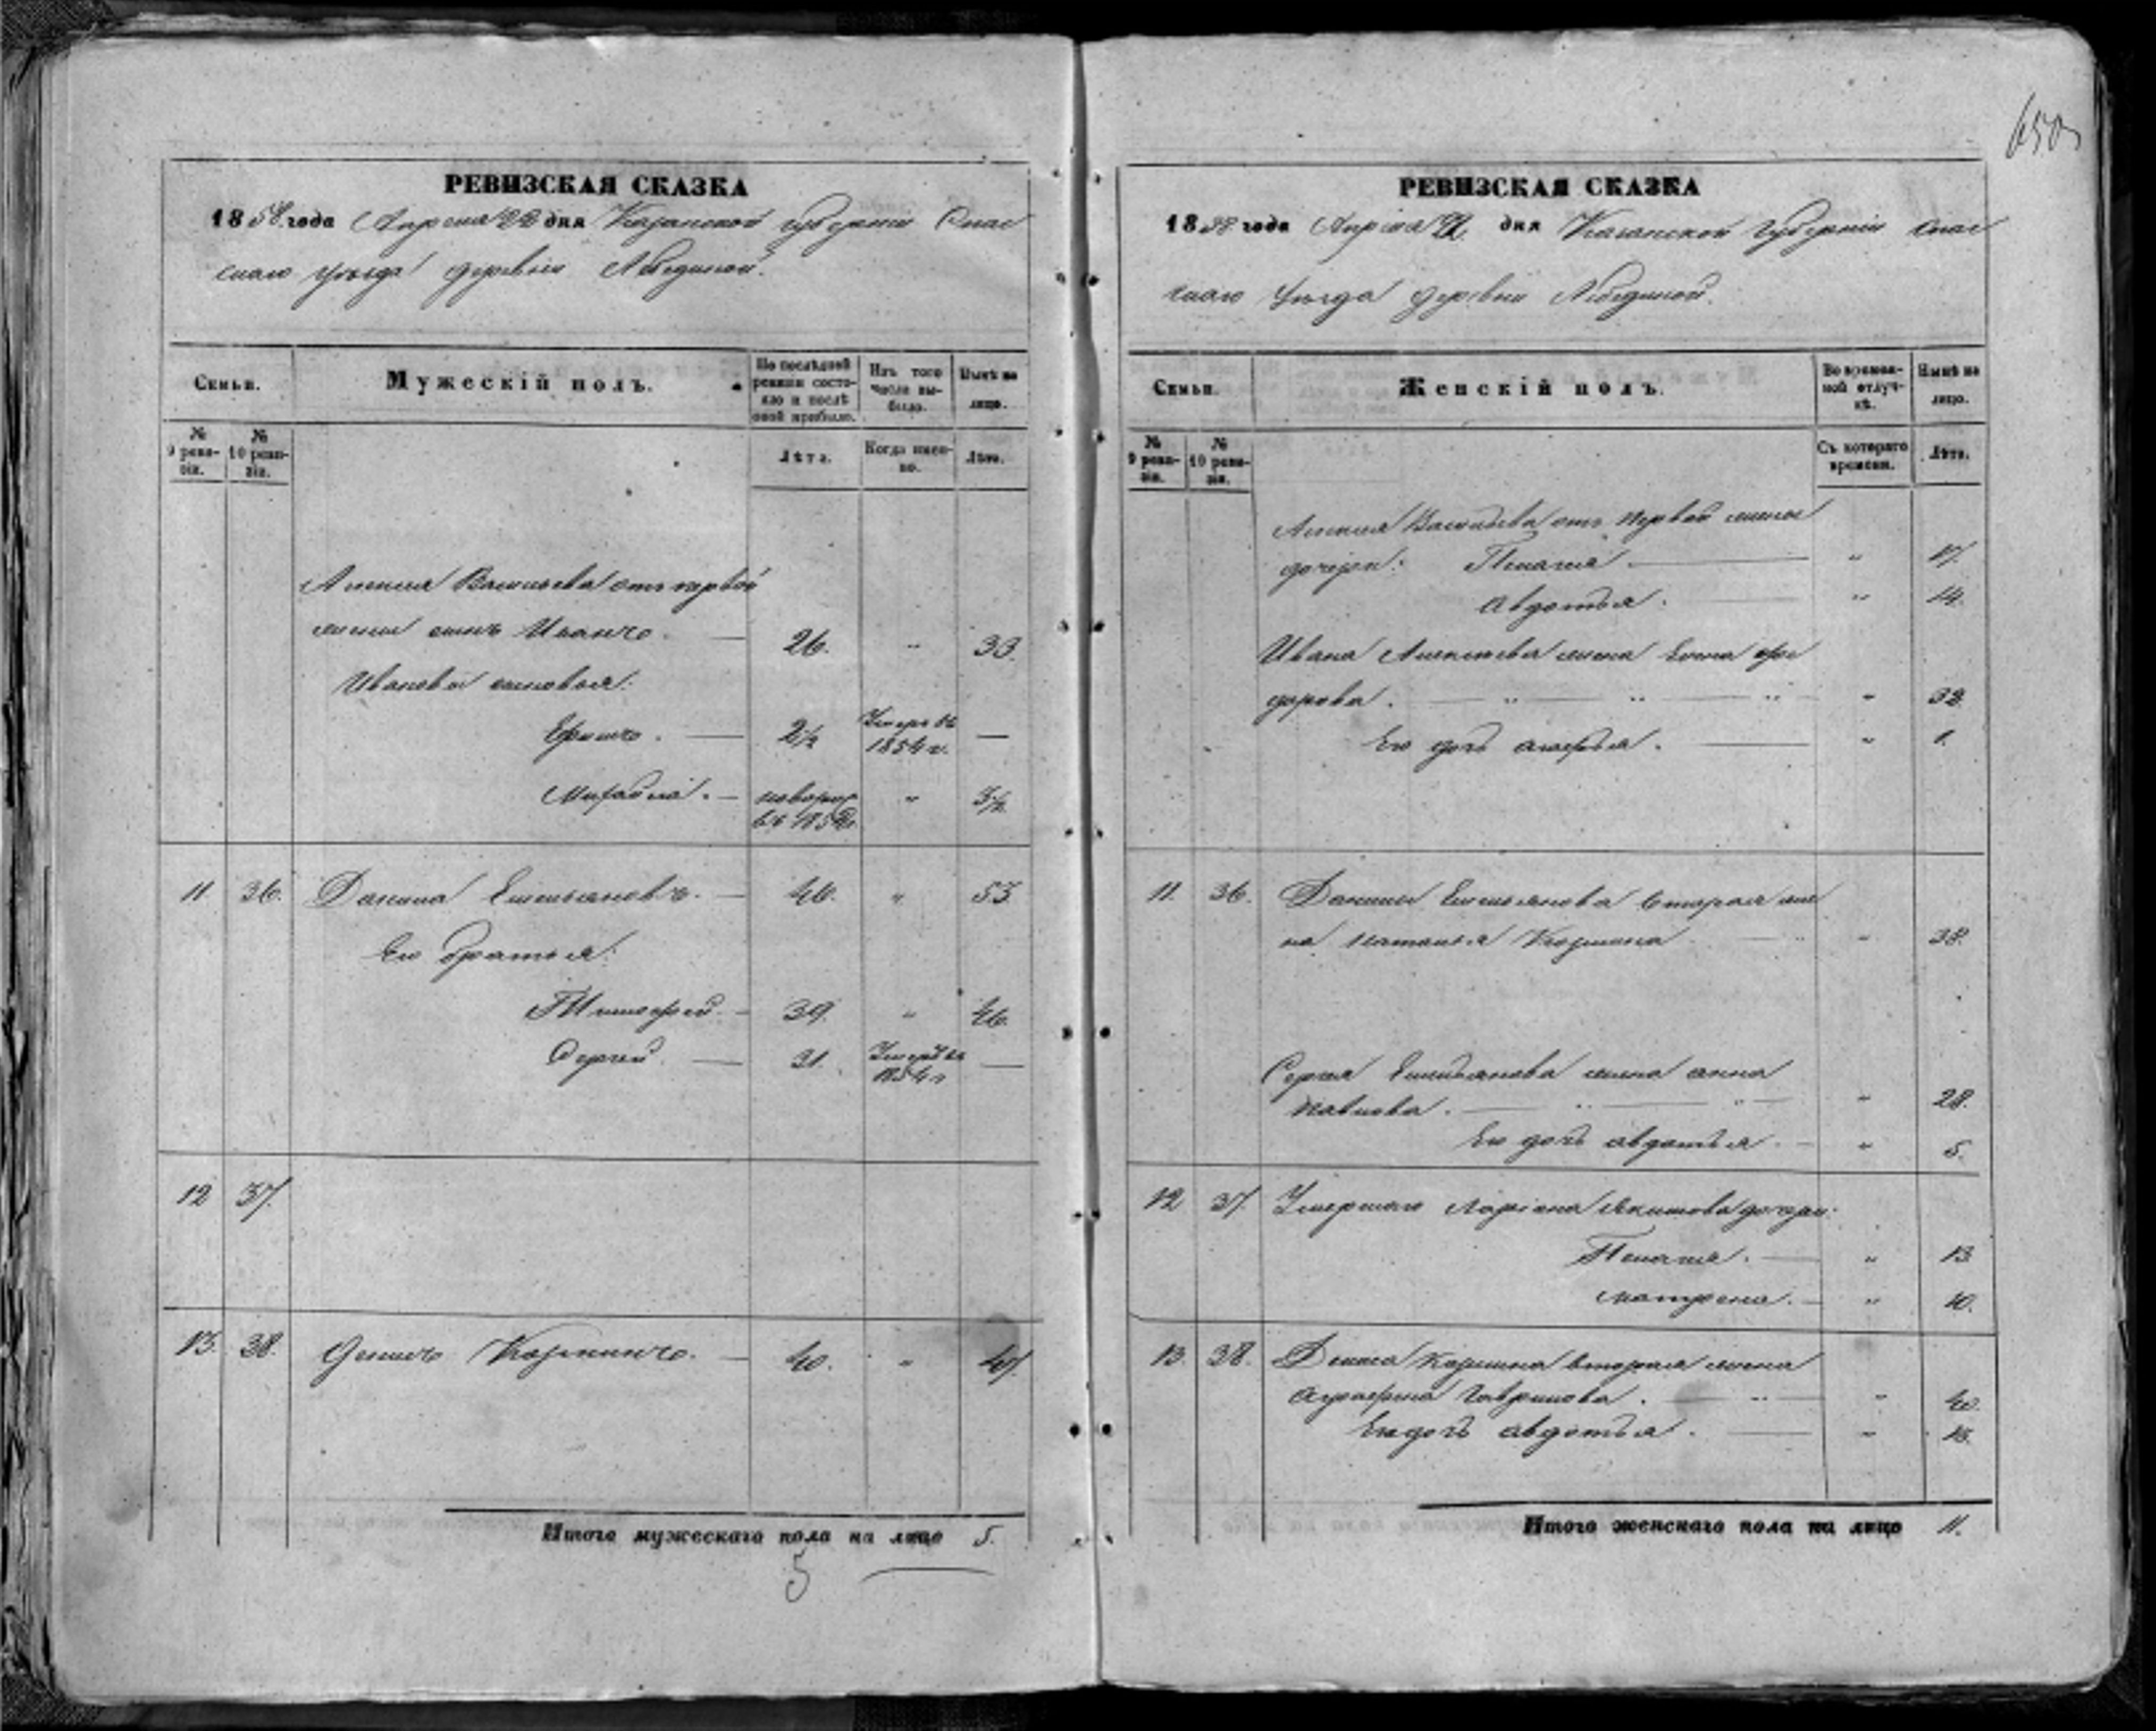 650
РЕВИЗСКАЯ СКАЗКА
1858 года Апреля 22 дня Казанской губернии Спас
скаго уѣзда деревни Лебединой.
Семьи.
Мужескій полъ.
По послѣдней ревизіи состояло и послѣ оной прибыло.
Изъ того числа выбыло.
Нынѣ на лицо.
№ 9 ревизіи.
№ 10 ревизіи.
Лѣта.
Когда именно.
Лѣта.
Алексея Васильева отъ первой
жены сынъ Иванъ. — 26. " 33.
Ивановы сыновья:
Ефимъ. — 2½ Умеръ въ 1854 г. —
Михайла. — новорож въ 185 г. " 3½
11 36. Данила Емельяновъ. — 46. " 53.
Его братья:
Тимофей. — 39. " 46.
Сергей. — 31. Умеръ въ 1854 г —
12 37.
13. 38. Денисъ Козминъ. — 40. " 47.
Итого мужескаго пола на лицо 5.
5
РЕВИЗСКАЯ СКАЗКА
1858 года Апреля 22 дня Казанской Губерніи Спас
скаго Уѣзда деревни Лебединой.
Семьи.
Женскій полъ.
Во временной отлучкѣ.
Нынѣ на лицо.
№ 9 ревизіи.
№ 10 ревизіи.
Съ котораго времени.
Лѣта.
Алексея Васильева отъ первой жены
дочери: Пелагея. — " 17.
Авдотья. — " 14.
Ивана Алексеева жена Елена Фе
дорова. — " — " — " " 32.
Его дочь — " 1.
11. 36. Данилы Емельянова вторая же
на Наталья Козмина — " " 38.
Сергея Емельянова жена Анна
Павлова. — " — " — " 28.
Его дочь Авдотья. — " 5.
12 37. Умершаго Ларіона Якимова дочери:
Пелагея. — " 13
Матрена. — " 10.
13 38. Дениса Козмина вторая жена
Аграфена Гаврилова. — " — " 40.
Его дочь Авдотья. — " 15.
Итого женскаго пола на лицо 11.